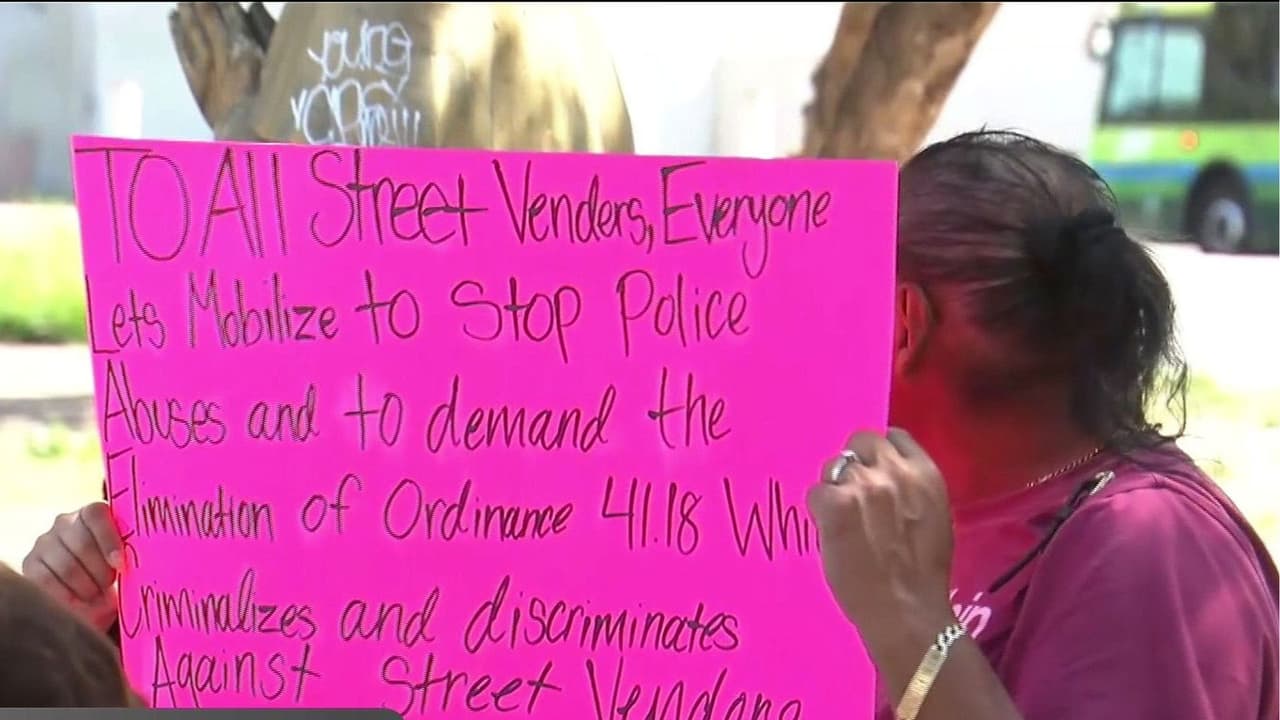 young
TO All Street Venders, Everyone
Lets Mobilize to Stop Police
Abuses and to demand the
Elimination of Ordinance 41.18
Criminalizes and discriminates
Against Street